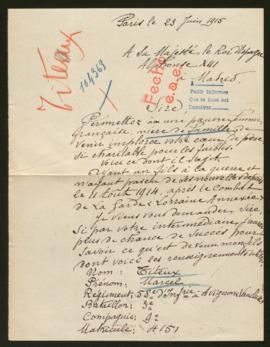 Paris le 23 Juin 1915
Titeux
A Sa Majesté le Roi d'Espagne
Alphonse XIII
Madrid
Fecho
Sire
Pedir informes
Permettez à une pauvre femme
française, mère de famille de
venir implorer votre cœur
si charitable pour les faibles.
Voici ce dont il s'agit.
Ayant un fils à la guerre et
n'ayant pas eu de ses nouvelles depuis
le 11 Août 1914, après le combat
de La Garde (Lorraine Annexée)
Je viens vous demander Sire
si par votre intermédiaire j'aurais
plus de chance de succès pour
savoir ce qu'est devenu mon fils
dont voici les renseignements
Nom: Titeux
Prénom: Marcel
Régiment: 58e d'Infrie à Avignon Vaucluse
Bataillon: 3e
Compagnie: 9e
Matricule: 4151